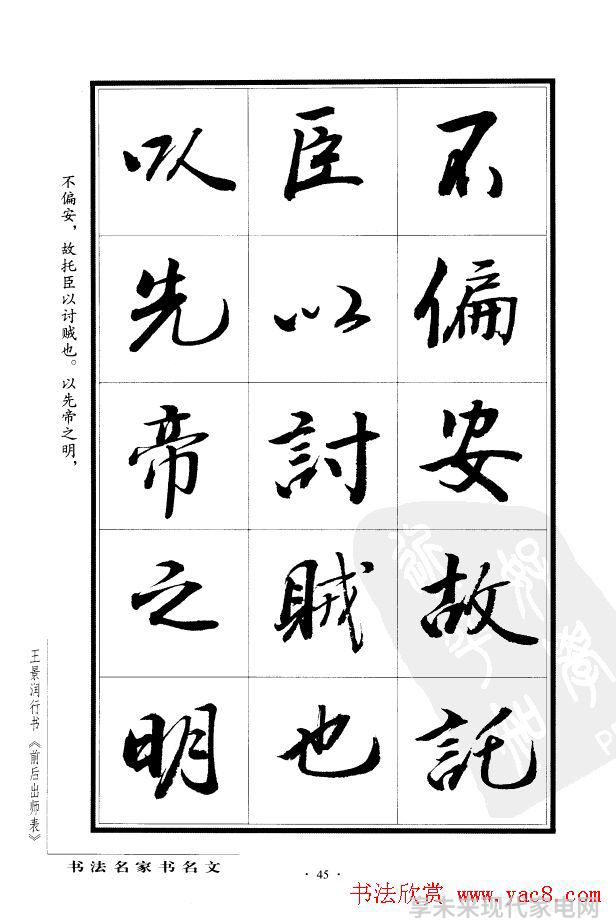 不偏安故託
臣以討賊也
以先帝之明
不偏安，故托臣以讨贼也。以先帝之明，
王景润行书《前后出师表》
书法名家书名文
· 45 ·
书法欣赏 www.yac8.com
享未来现代家电网